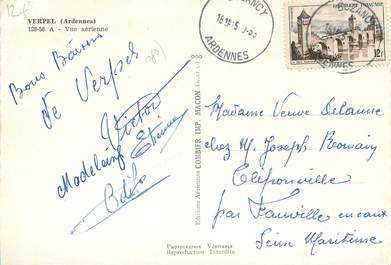 12€
VERPEL (Ardennes)
128-56 A - Vue aérienne
Bons Baisers
de Verpel
Victor
Madeleine Etienne
Odile
Editions Aériennes COMBIER IMP. MACON
PHOTOGRAPHIE VÉRITABLE
Reproduction Interdite
BUZANCY
16 H 15
ARDENNES
RÉPUBLIQUE FRANÇAISE
12F
Madame Veuve Delaune
chez M. Joseph Romain
par Fauville en caux
Seine Maritime